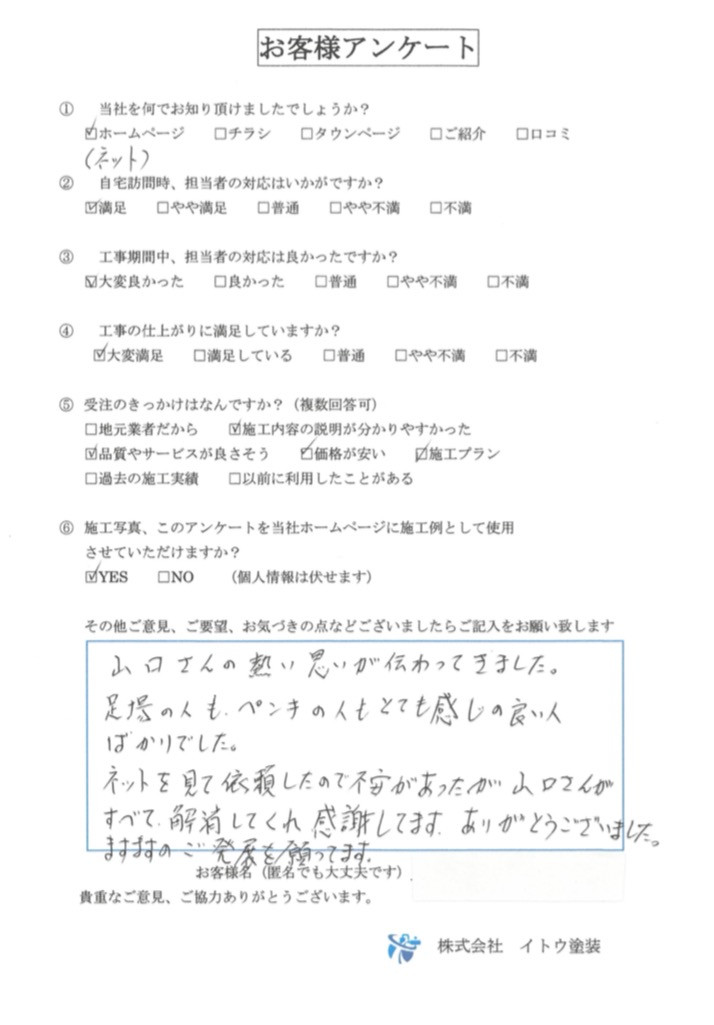 お客様アンケート
① 当社を何でお知り頂けましたでしょうか？
☑ホームページ □チラシ □タウンページ □ご紹介 □口コミ
(ネット)
② 自宅訪問時、担当者の対応はいかがですか？
☑満足 □やや満足 □普通 □やや不満 □不満
③ 工事期間中、担当者の対応は良かったですか？
☑大変良かった □良かった □普通 □やや不満 □不満
④ 工事の仕上がりに満足していますか？
☑大変満足 □満足している □普通 □やや不満 □不満
⑤ 受注のきっかけはなんですか？（複数回答可）
□地元業者だから ☑施工内容の説明が分かりやすかった
☑品質やサービスが良さそう ☑価格が安い ☑施工プラン
□過去の施工実績 □以前に利用したことがある
⑥ 施工写真、このアンケートを当社ホームページに施工例として使用
させていただけますか？
☑YES □NO （個人情報は伏せます）
その他ご意見、ご要望、お気づきの点などございましたらご記入をお願い致します
山口さんの熱い思いが伝わってきました。
足場の人も、ペンキの人もとても感じの良い人
ばかりでした。
ネットを見て依頼したので不安があったが山口さんが
すべて、解消してくれ感謝してます。ありがとうございました。
ますますのご発展を願ってます。
お客様名（匿名でも大丈夫です）
貴重なご意見、ご協力ありがとうございます。
株式会社 イトウ塗装